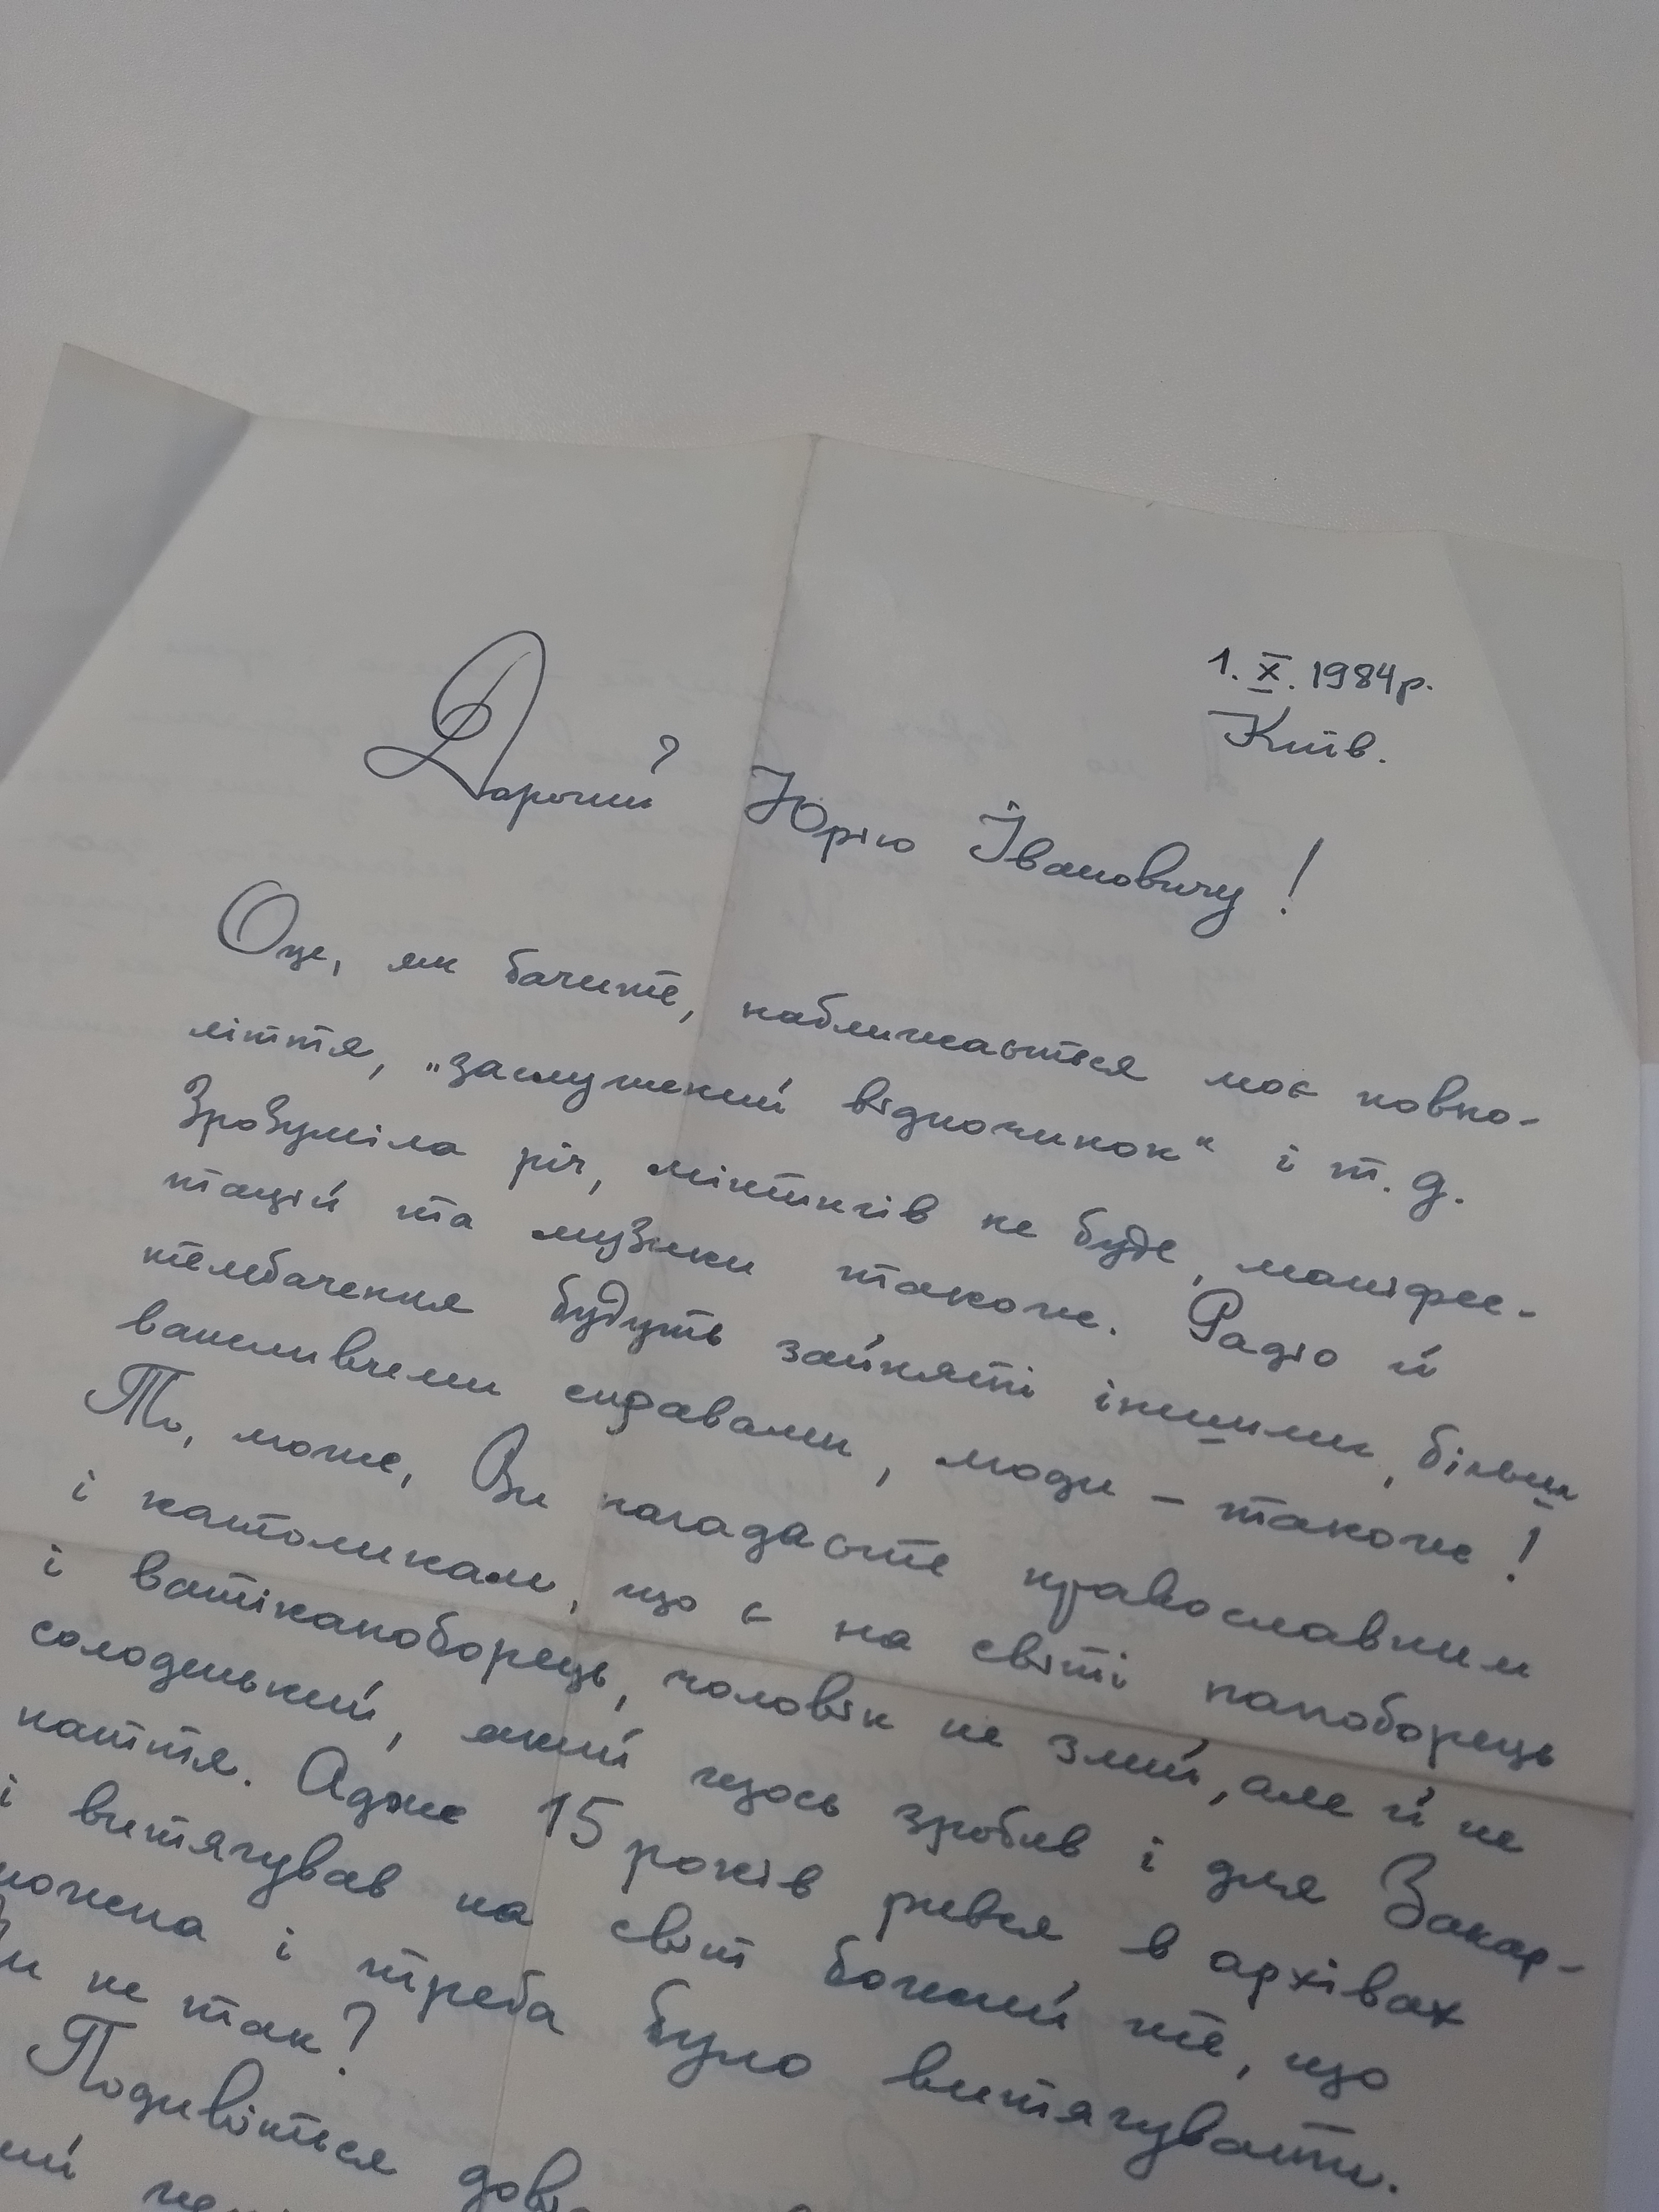 1. X. 1984 р.
Київ.
Дорогий Юрію Івановичу!
Оце, як бачите, наближається моє повно-
ліття, „заслужений відпочинок“ і т. д.
Зрозуміла річ, мітингів не буде, маніфес-
тацій та музики також. Радіо й
телебачення будуть зайняті іншими, більш
важливими справами, люди – також!
То, може, Ви нагадаєте православним
і католикам, що є на світі папоборець
і ватіканоборець, чоловік не злий, але й не
солоденький, який щось зробив і для Закар-
паття. Адже 15 років рився в архівах
і витягував на світ божий те, що
можна і треба було витягувати.
Чи не так?
Подивіться